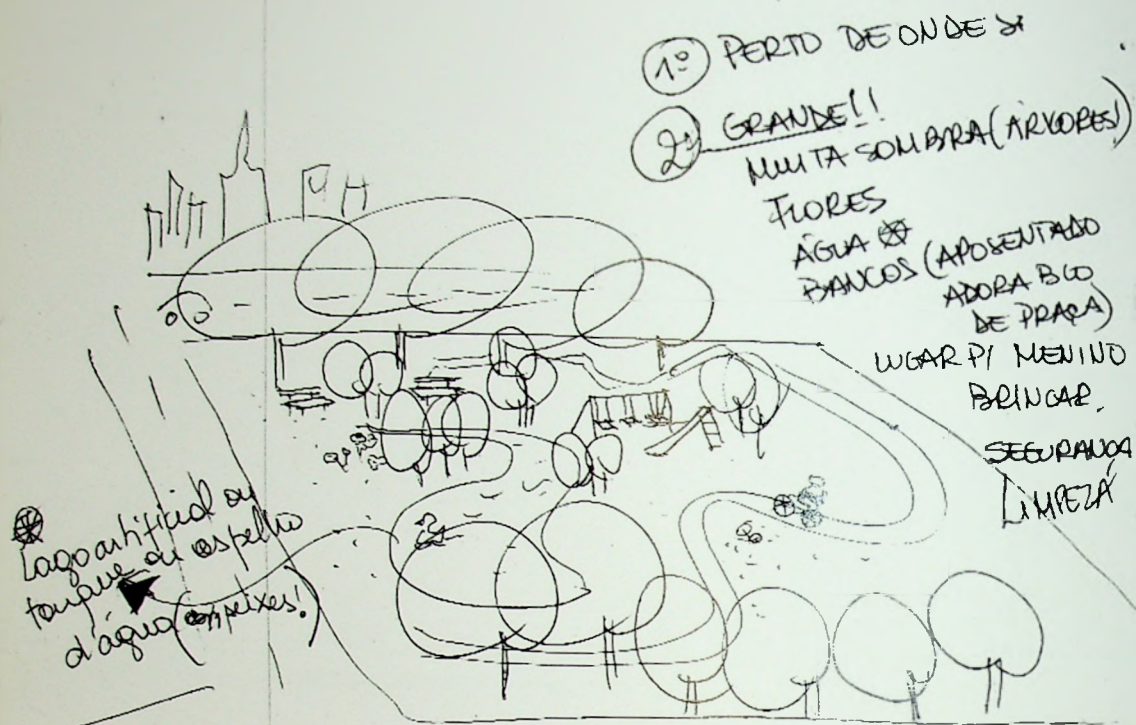 1º PERTO DE ONDE
2º GRANDE!!
MUITA SOMBRA (ÁRVORES)
FLORES
ÁGUA
BANCOS (APOSENTADO
ADORA BCO
DE PRAÇA)
LUGAR P/ MENINO
BRINCAR.
SEGURANÇA
LIMPEZA
Lago artificial ou
tanque ou espelho
d'água (com peixes!)